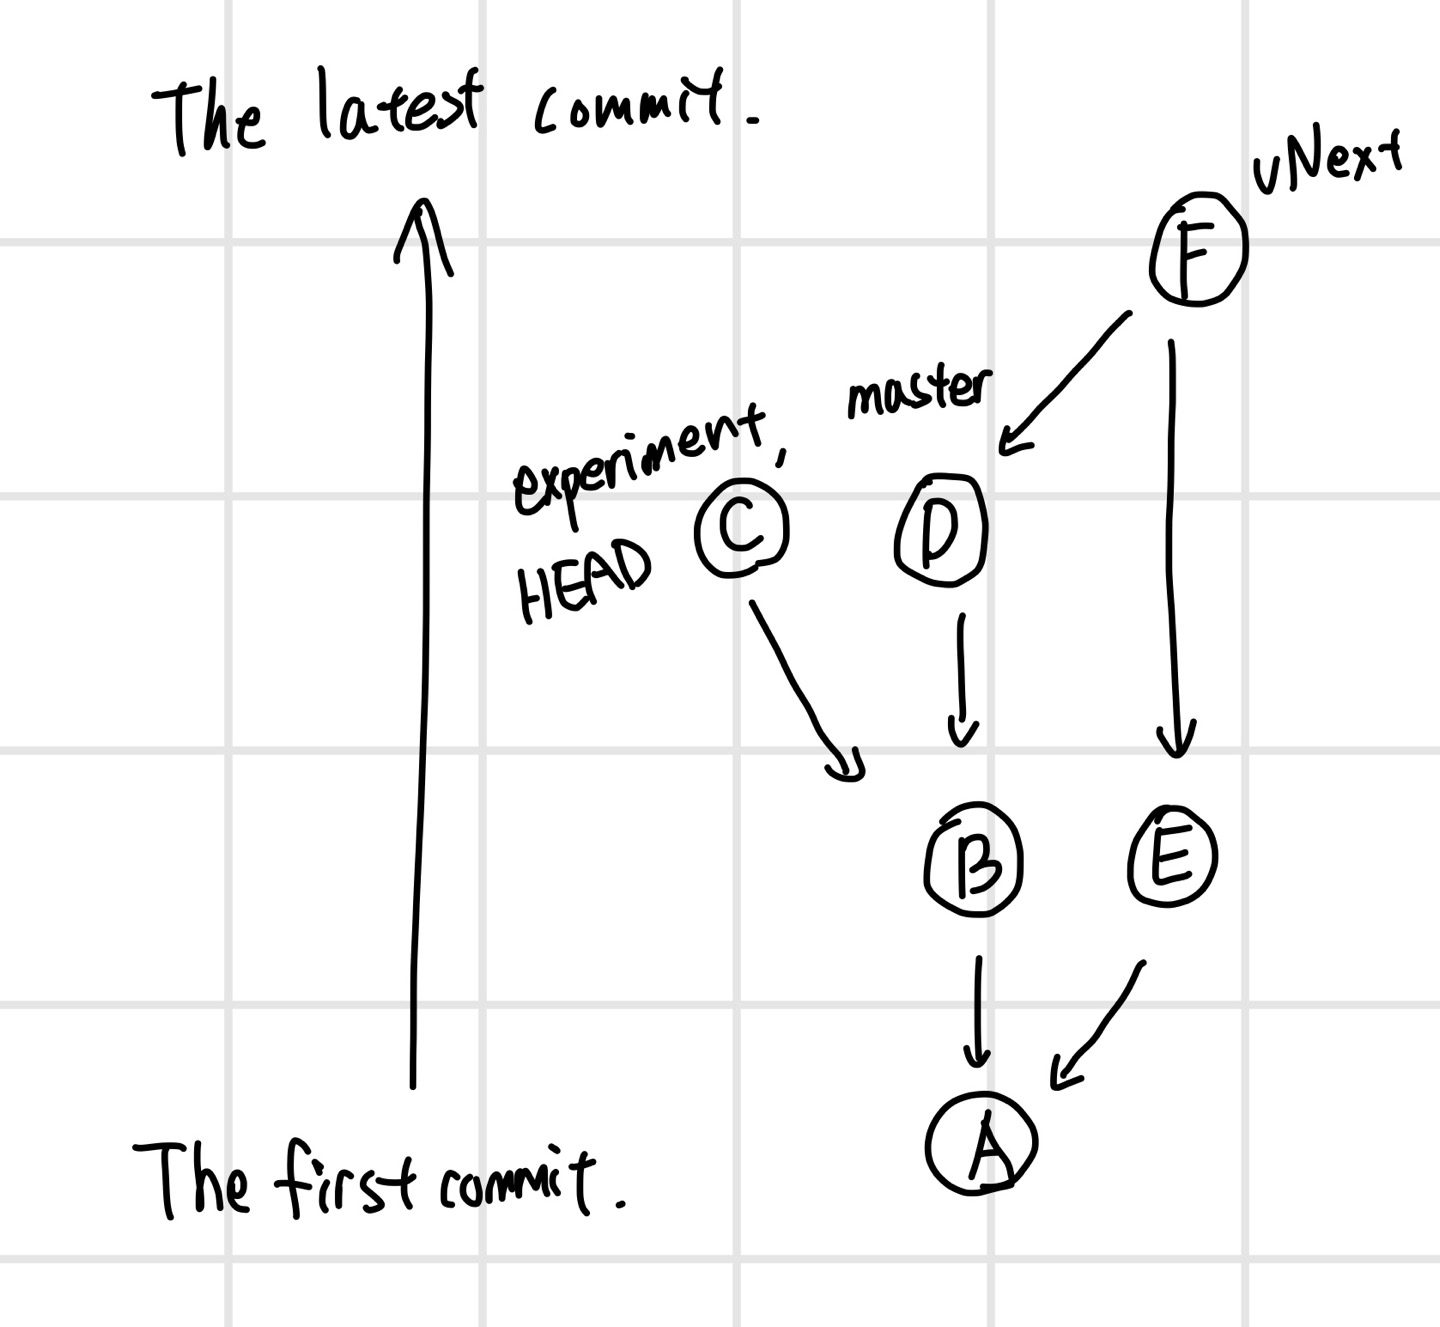 The latest commit.
vNext
F
master
experiment,
HEAD
C
D
B
E
A
The first commit.